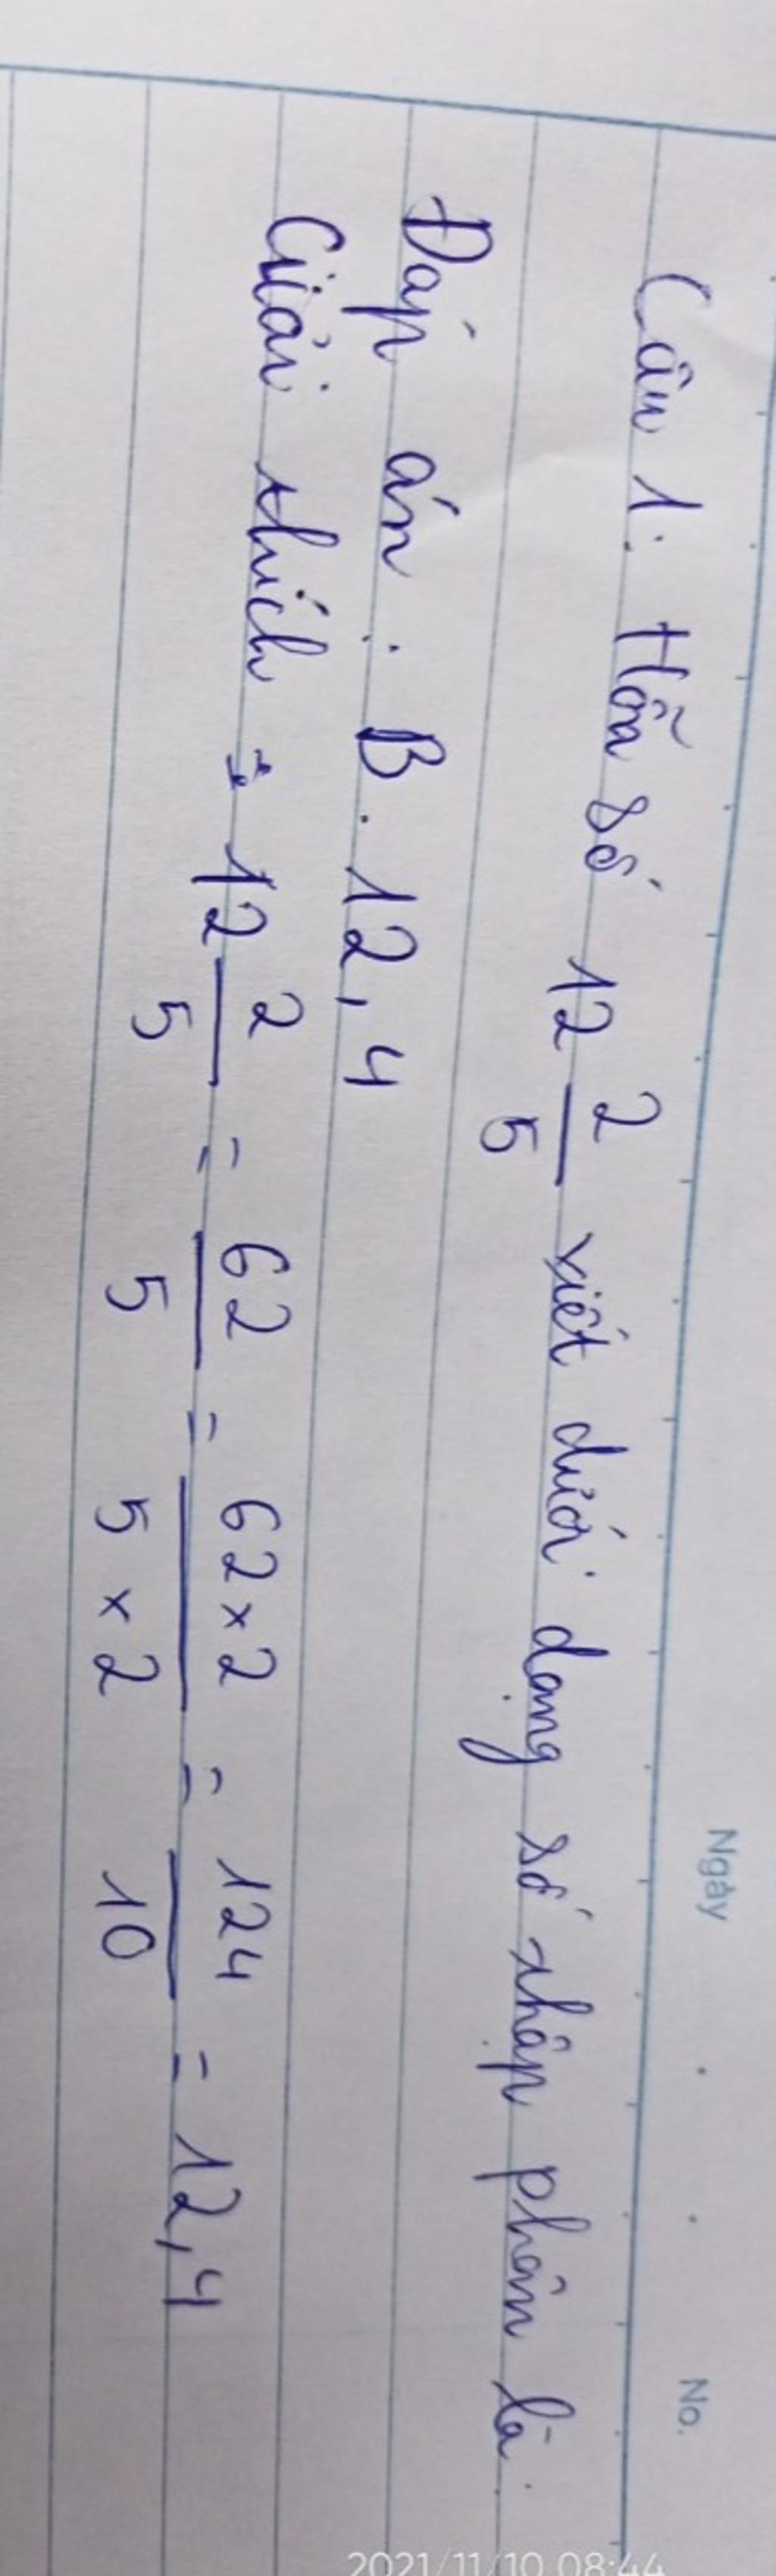 Ngày No.
Câu 1: Hỗn số 12 2/5 viết dưới dạng số thập phân là:
Đáp án: B. 12,4
Giải thích: 12 2/5 = 62/5 = 62 × 2 / 5 × 2 = 124/10 = 12,4
2021/11/10 08:44